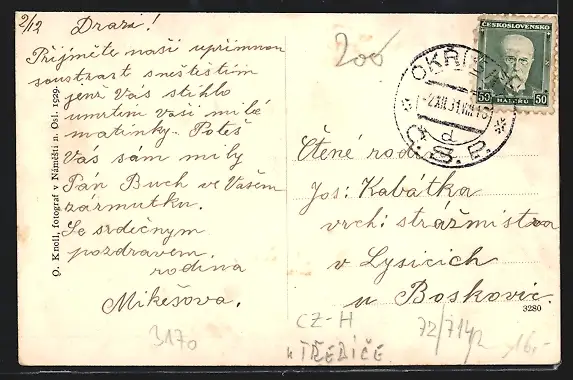 2/12 Drazí!
Přijměte naši upřímnou
soustrast sneštěstím
jenž Vás stihlo
umrtím vaší milé
matinky. Potěš
Vás sám milý
Pán Buch ve Vašem
zármutku.
Se srdečným
pozdravem.
rodina
Mikešova.
O. Knoll, fotograf v Náměšti n. Osl. 1929.
3170
200
ČESKOSLOVENSKO
50 HALÉŘŮ 50
OKŘÍŠKY
2.XII.31
d
Č.S.P.
Čtené rod.
Jos: Kabátka
vrch: strážmistra
v Lysicích
u Boskovic.
3280
CZ-H
u TŘEBÍČE
72/714
16,-